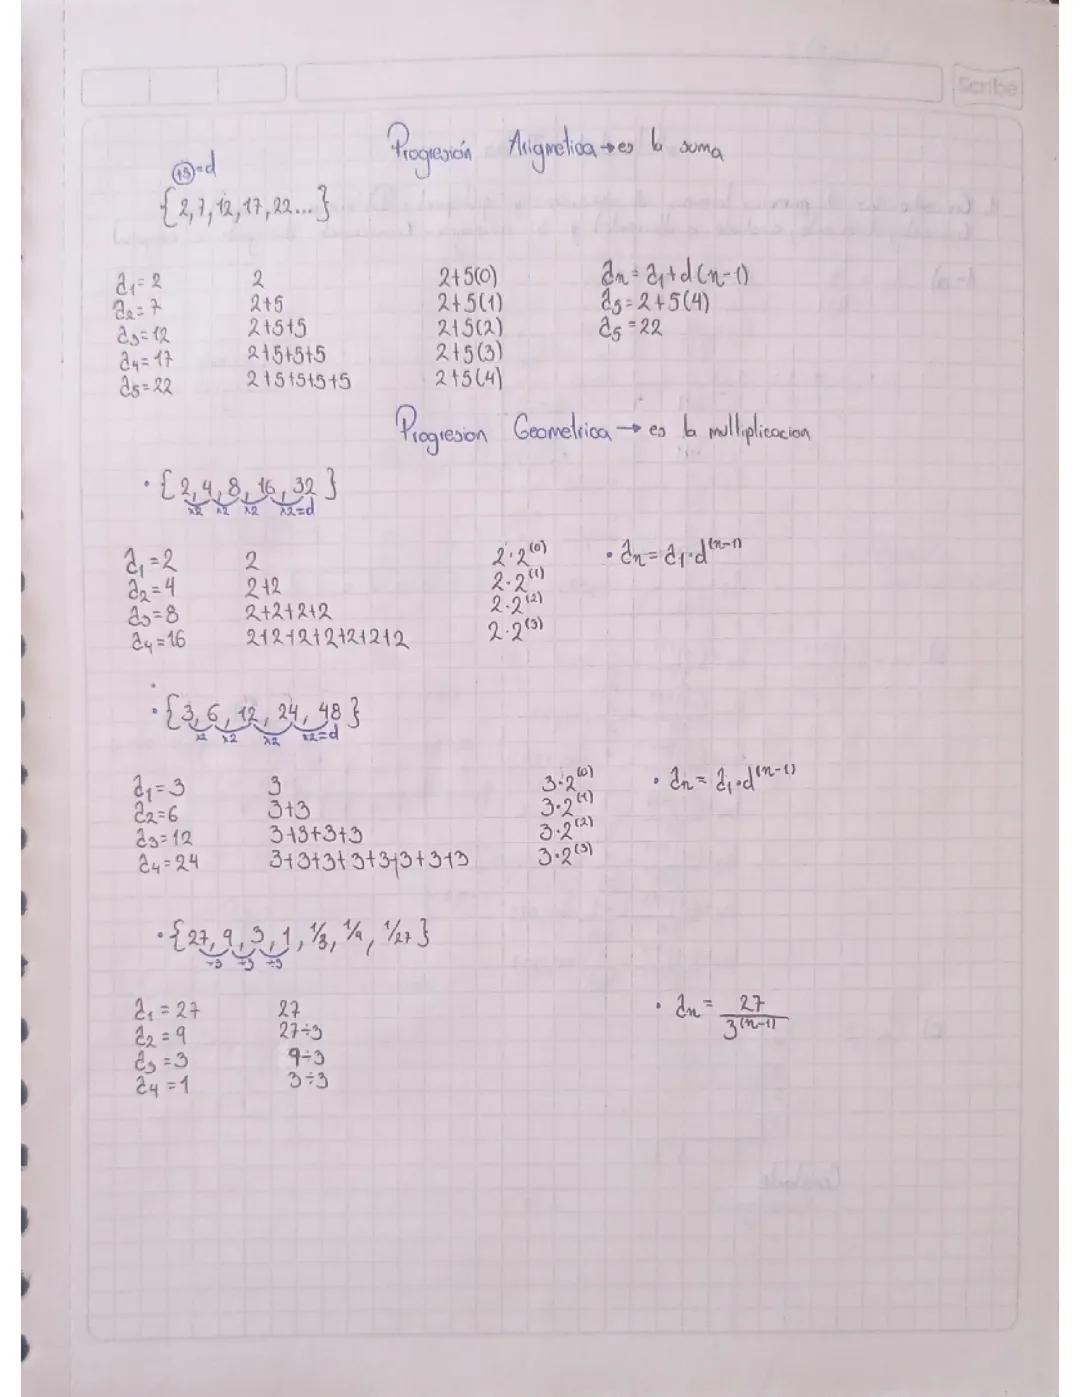 Scribe
Progresión Arigmetica → es la suma
+5=d
{2,7,12,17,22...}
a1=2 2 2+5(0) an=a1+d(n-1)
a2=7 2+5 2+5(1) a5=2+5(4)
a3=12 2+5+5 2+5(2) a5=22
a4=17 2+5+5+5 2+5(3)
a5=22 2+5+5+5+5 2+5(4)
Progresion Geometrica → es la multiplicacion
• {2,4,8,16,32}
x2 x2 x2 x2=d
a1=2 2 2·2^(0) • an=a1·d^(n-1)
a2=4 2+2 2·2^(1)
a3=8 2+2+2+2 2·2^(2)
a4=16 2+2+2+2+2+2+2 2·2^(3)
• {3,6,12,24,48}
x2 x2 x2 x2=d
a1=3 3 3·2^(0) • an=a1·d^(n-1)
a2=6 3+3 3·2^(1)
a3=12 3+3+3+3 3·2^(2)
a4=24 3+3+3+3+3+3+3+3 3·2^(3)
• {27,9,3,1,1/3,1/9,1/27}
÷3 ÷3 ÷3
a1=27 27 • an=27/3^(n-1)
a2=9 27÷3
a3=3 9÷3
a4=1 3÷3